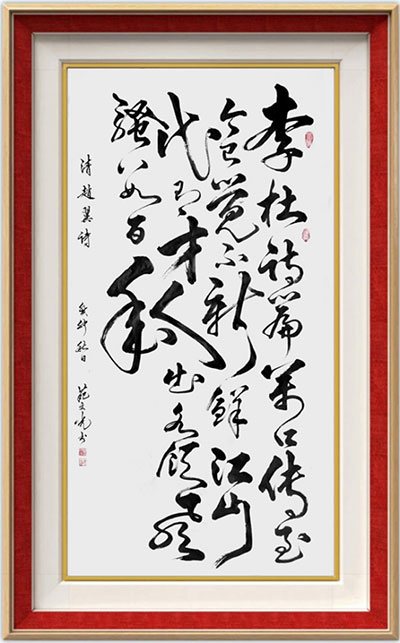 李杜诗篇萬口传至
今已覺不新鲜江山
代有才人出各领风
骚数百年
清趙翼诗
癸卯秋日